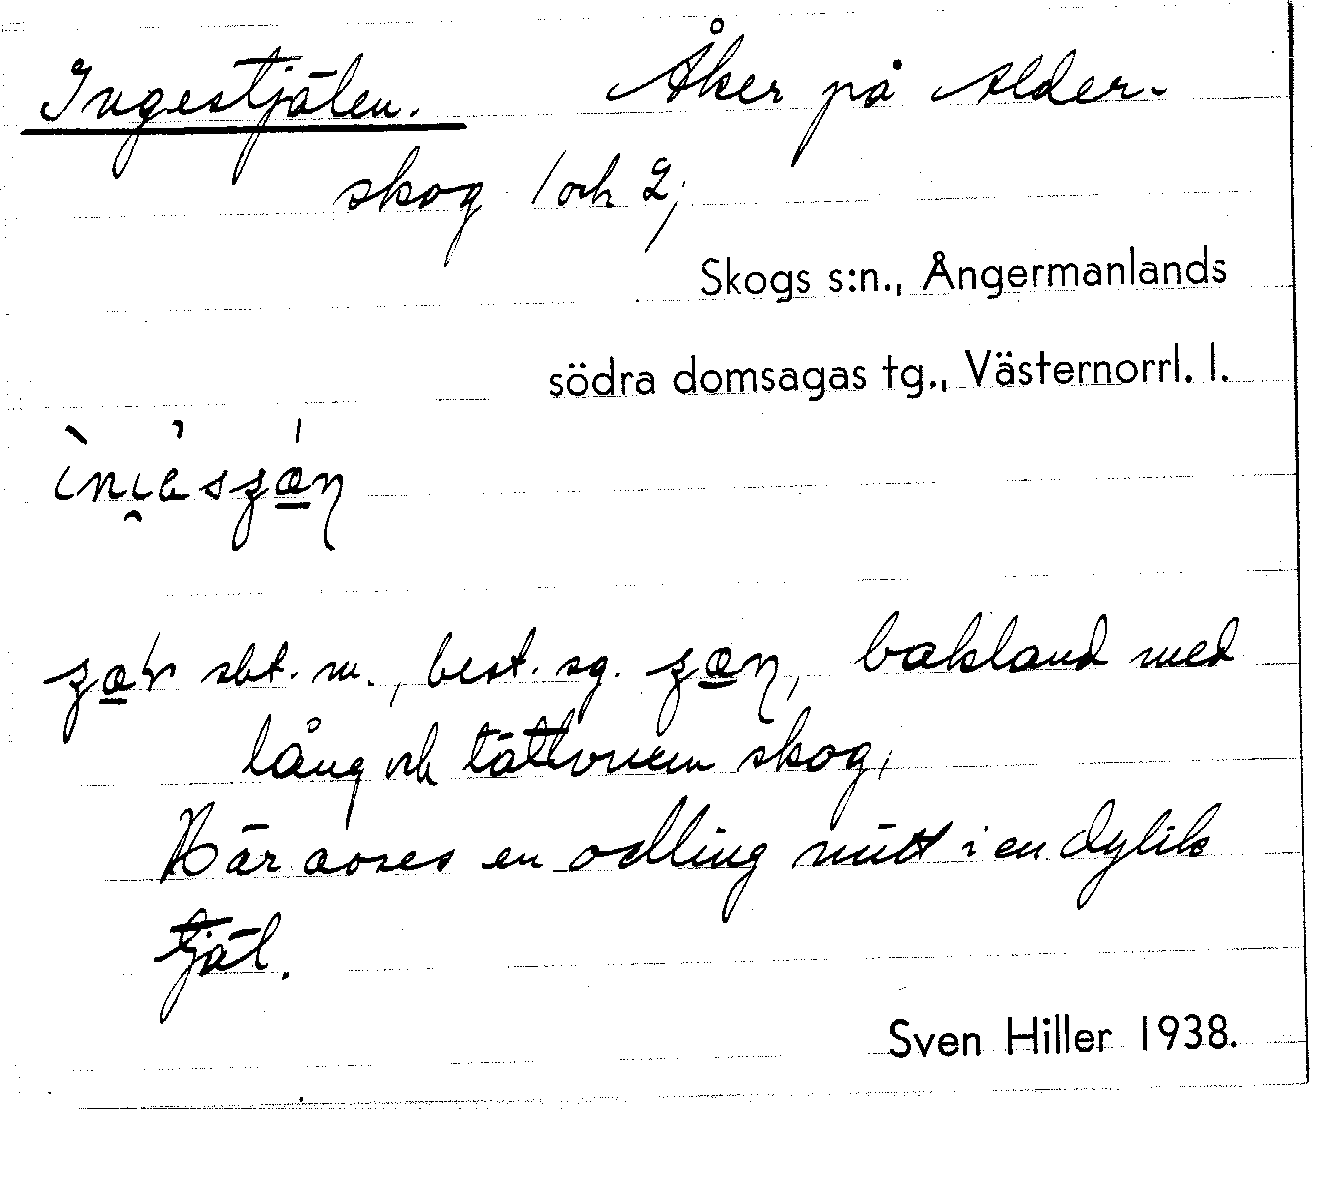 Ingestjälen. Åker på Alder-
skog 1 och 2;
Skogs s:n., Ångermanlands
södra domsagas tg., Västernorrl. l.
sbt. m., best. sg. bakland med
lång och tättvuxen skog,
Här avses en odling mitt i en dylik
tjäl.
Sven Hiller 1938.